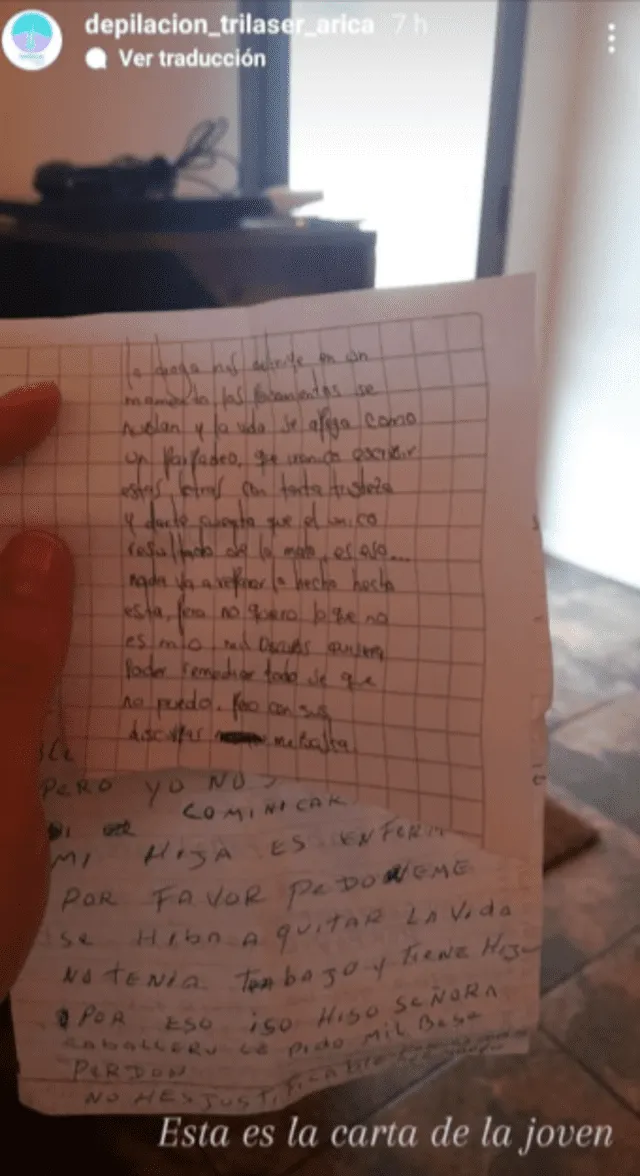 depilacion_trilaser_arica 7 h
Ver traducción
la droga nos derrite en un
momento los pensamientos se
nublan y la vida se apaga como
un parpadeo, que ironico escribir
estas letras con tanta tristeza
y darte cuenta que el unico
resultado de la mata, es eso...
nada va a reparar lo hecho hecho
esta, pero no quero lo que no
es mio mil Disculpas quisiera
Poder remediar todo se que
no puedo. Pero con sus
disculpas me basta
PERO YO NO
COMINICAR
MI HIJA ES ENFERM
POR FAVOR PEDONEME
SE HIBA A QUITAR LA VIDA
NO TENIA TRABAJO Y TIENE HIJO
POR ESO ISO HISO SEÑORA
CABALLERO LE PIDO MIL BESE
PERDON
NO HES JUSTIFICABLE
Esta es la carta de la joven